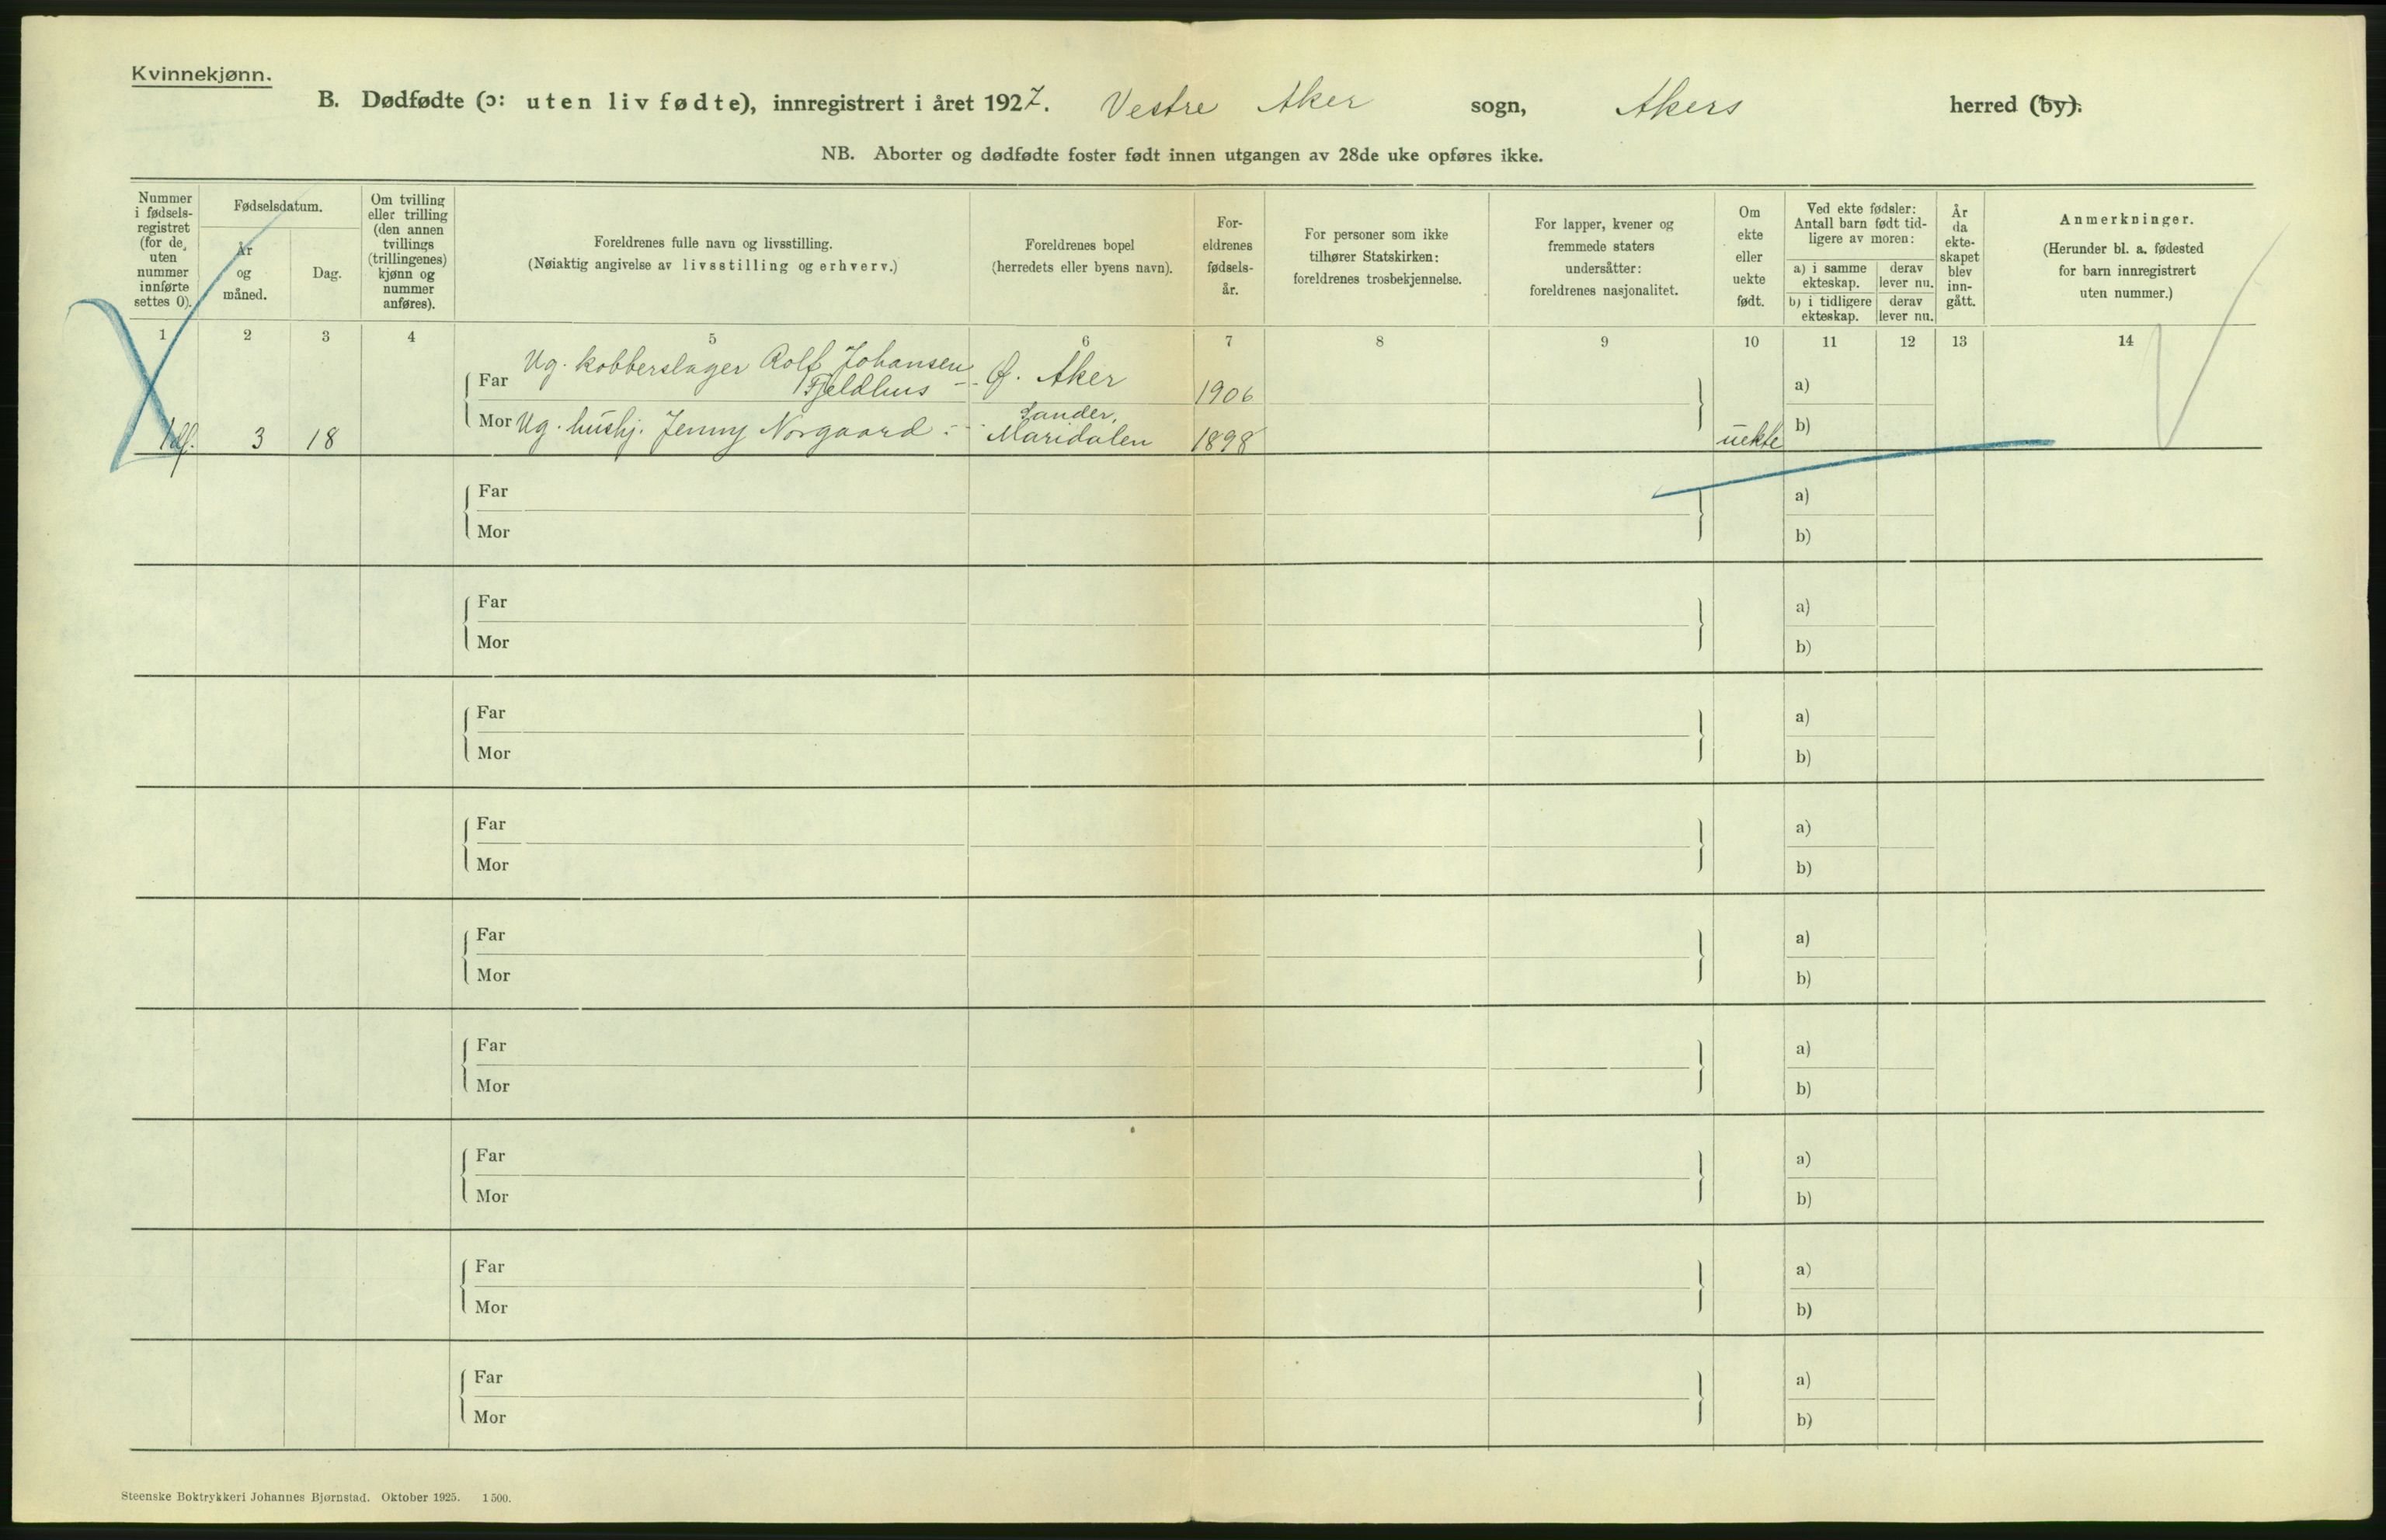 Kvinnekjønn.
B. Dødfødte (ɔ: uten liv fødte), innregistrert i året 1927. Vestre Aker sogn, Akers herred (by).
NB. Aborter og dødfødte foster født innen utgangen av 28de uke opføres ikke.
Nummer i fødsels-registret (for de uten nummer innførte settes 0).
Fødselsdatum.
År og måned.
Dag.
Om tvilling eller trilling (den annen tvillings (trillingenes) kjønn og nummer anføres).
Foreldrenes fulle navn og livsstilling.
(Nøiaktig angivelse av livsstilling og erhverv.)
Foreldrenes bopel
(herredets eller byens navn).
For-eldrenes fødsels-år.
For personer som ikke tilhører Statskirken: foreldrenes trosbekjennelse.
For lapper, kvener og fremmede staters undersåtter: foreldrenes nasjonalitet.
Om ekte eller uekte født.
Ved ekte fødsler: Antall barn født tid-ligere av moren:
a) i samme ekteskap.
derav lever nu.
b) i tidligere ekteskap.
derav lever nu.
År da ekte-skapet blev inn-gått.
Anmerkninger.
(Herunder bl. a. fødested for barn innregistrert uten nummer.)
1 2 3 4 5 6 7 8 9 10 11 12 13 14
Far Ug. kobberslager Rolf Johansen Ø. Aker 1906 a)
Fjeldhus
Sander,
1 df. 3 18 Mor Ug. hushj. Jenny Norgaard Maridalen 1898 uekte b)
Far a)
Mor b)
Far a)
Mor b)
Far a)
Mor b)
Far a)
Mor b)
Far a)
Mor b)
Far a)
Mor b)
Far a)
Mor b)
Far a)
Mor b)
Far a)
Mor b)
Steenske Boktrykkeri Johannes Bjørnstad. Oktober 1925. 1500.